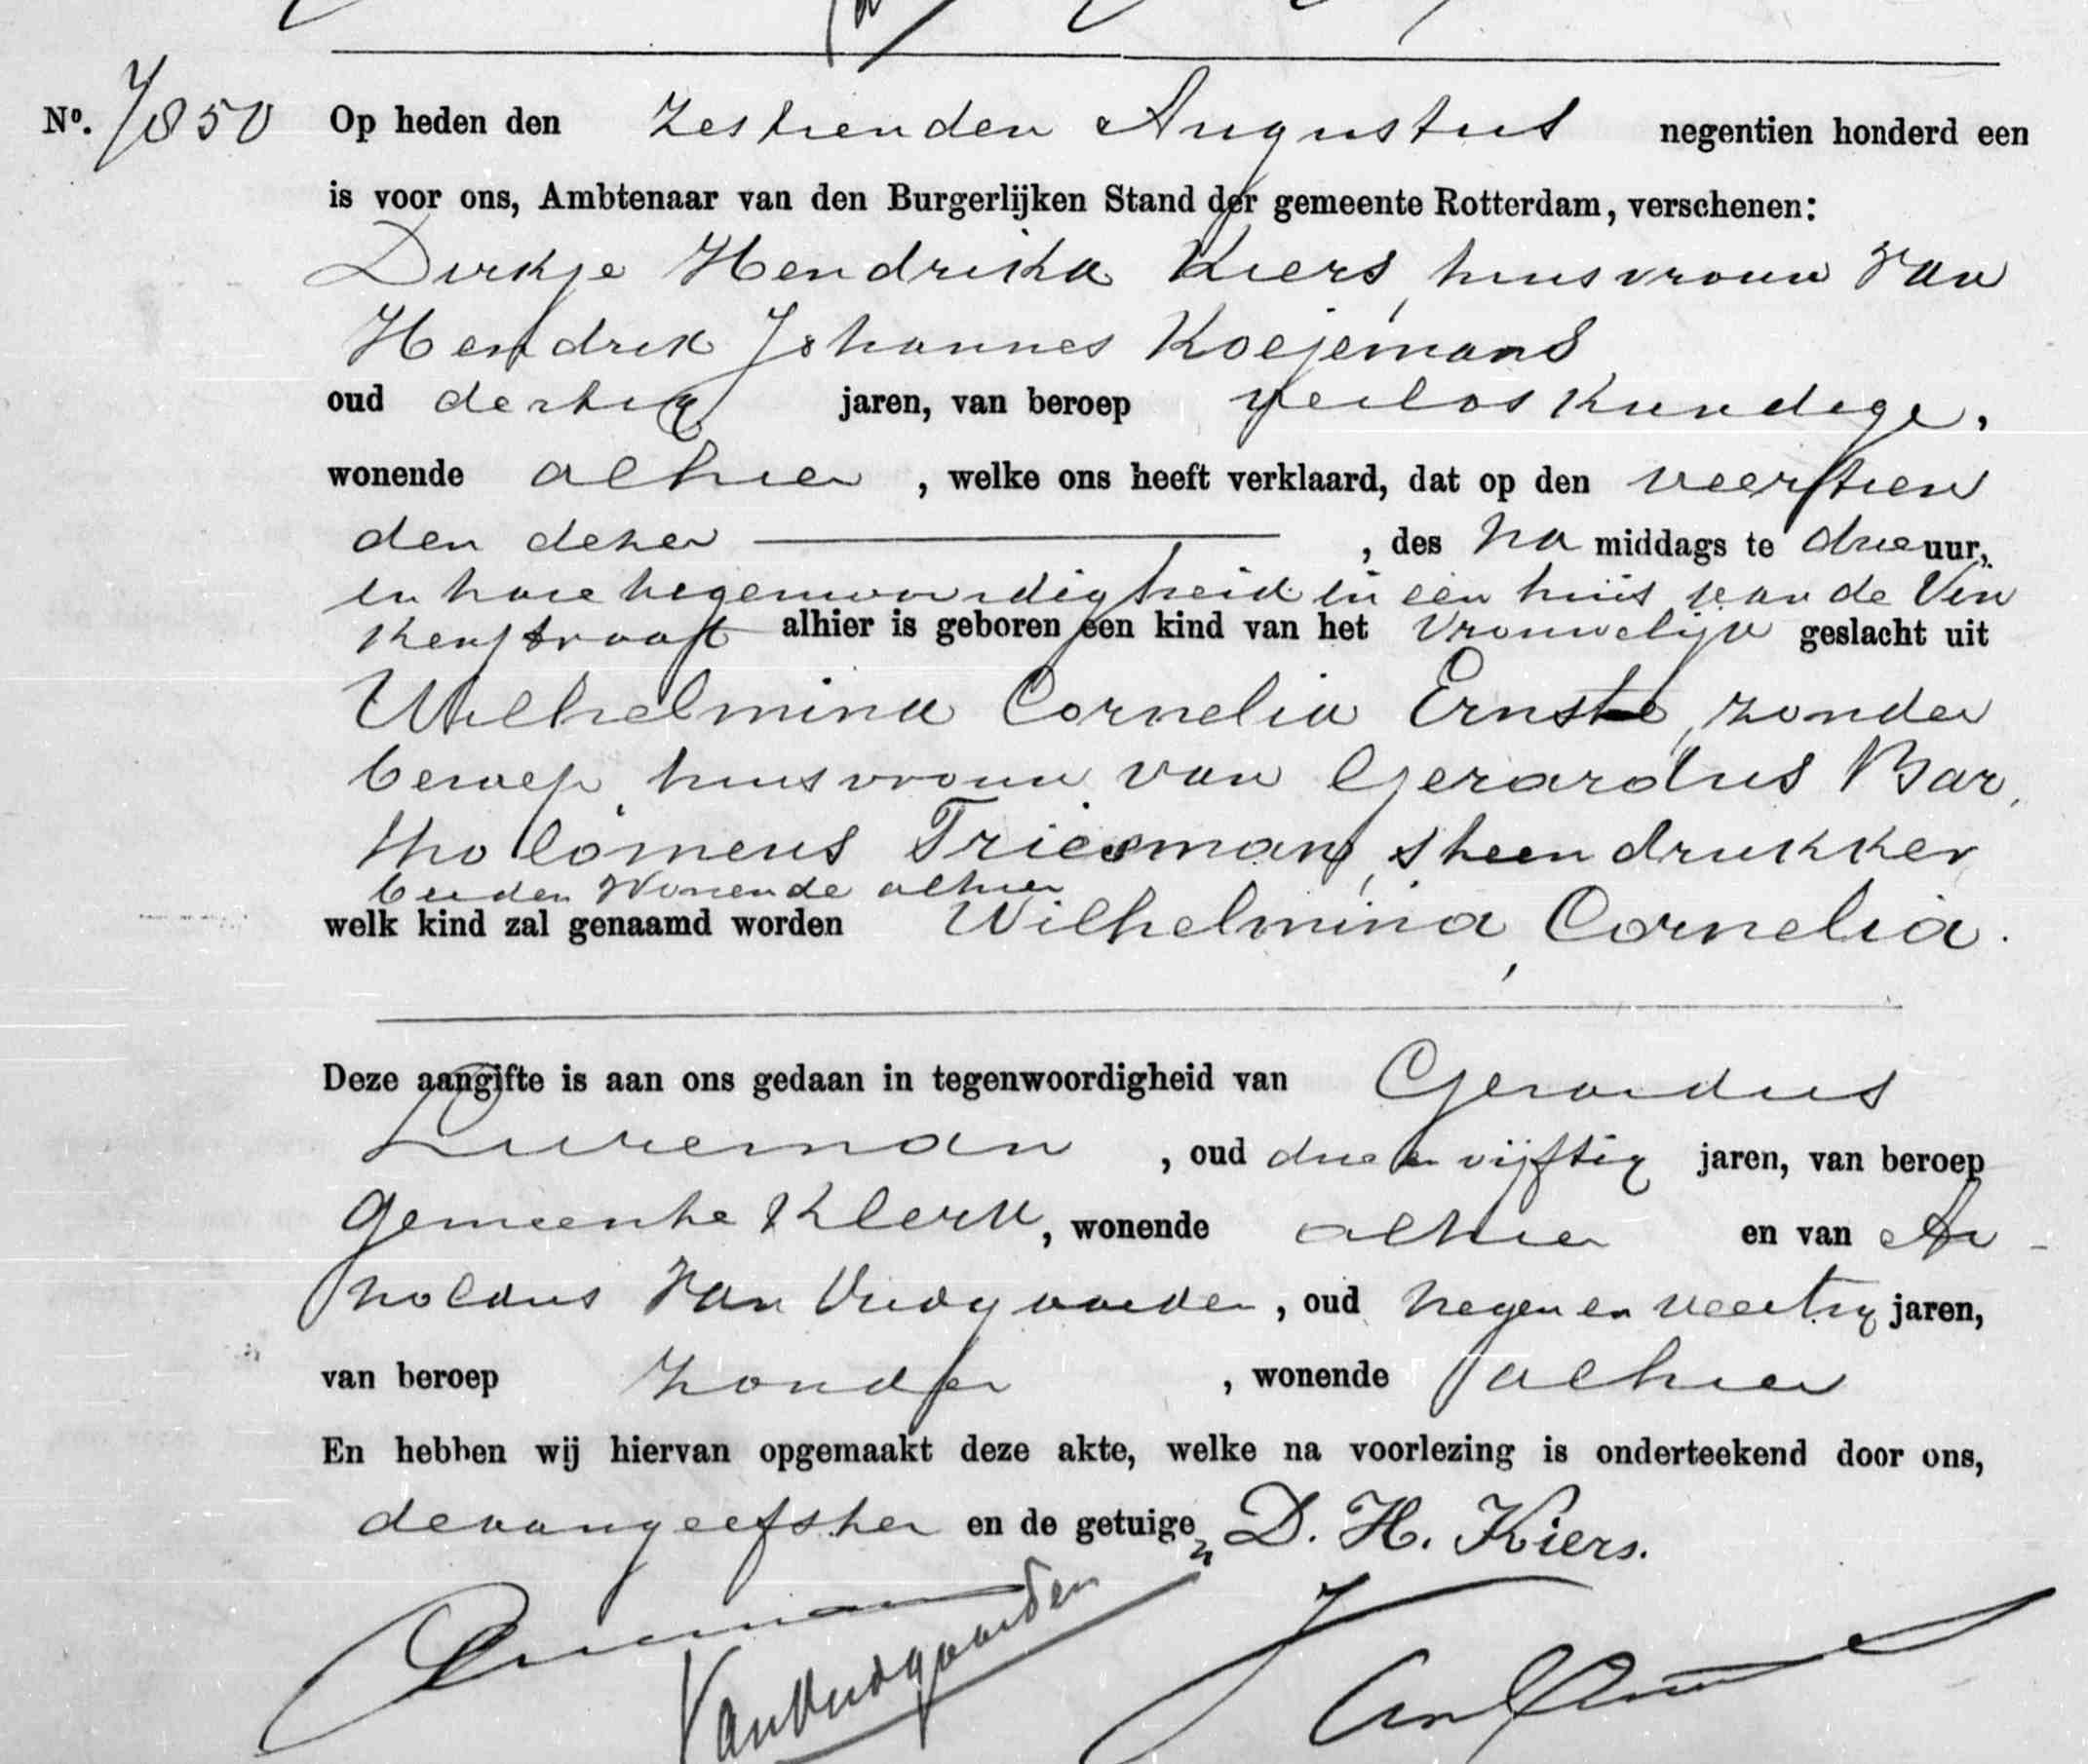 Nº. 7850 Op heden den zestienden Augustus negentien honderd een
is voor ons, Ambtenaar van den Burgerlijken Stand der gemeente Rotterdam, verschenen:
Dirkje Hendrika Kiers, huisvrouw van
Hendrik Johannes Koejemans
oud dertig jaren, van beroep verloskundige,
wonende alhier, welke ons heeft verklaard, dat op den veertien
den dezer, des na middags te drie uur,
in hare tegenwoordigheid in een huis van de Vin
kenstraat alhier is geboren een kind van het vrouwelijk geslacht uit
Wilhelmina Cornelia Ernste, zonder
beroep, huisvrouw van Gerardus Bar,
tholomeus Triesman, steendrukker
beiden wonende alhier
welk kind zal genaamd worden Wilhelmina, Cornelia.
Deze aangifte is aan ons gedaan in tegenwoordigheid van Gerardus
Lureman, oud drie en vijftig jaren, van beroep
gemeente klerk, wonende alhier en van Ar-
noldus van Vudgaarden, oud negen en veertig jaren,
van beroep zonder, wonende alhier
En hebben wij hiervan opgemaakt deze akte, welke na voorlezing is onderteekend door ons,
de aangeefster en de getuigen D. H. Kiers.